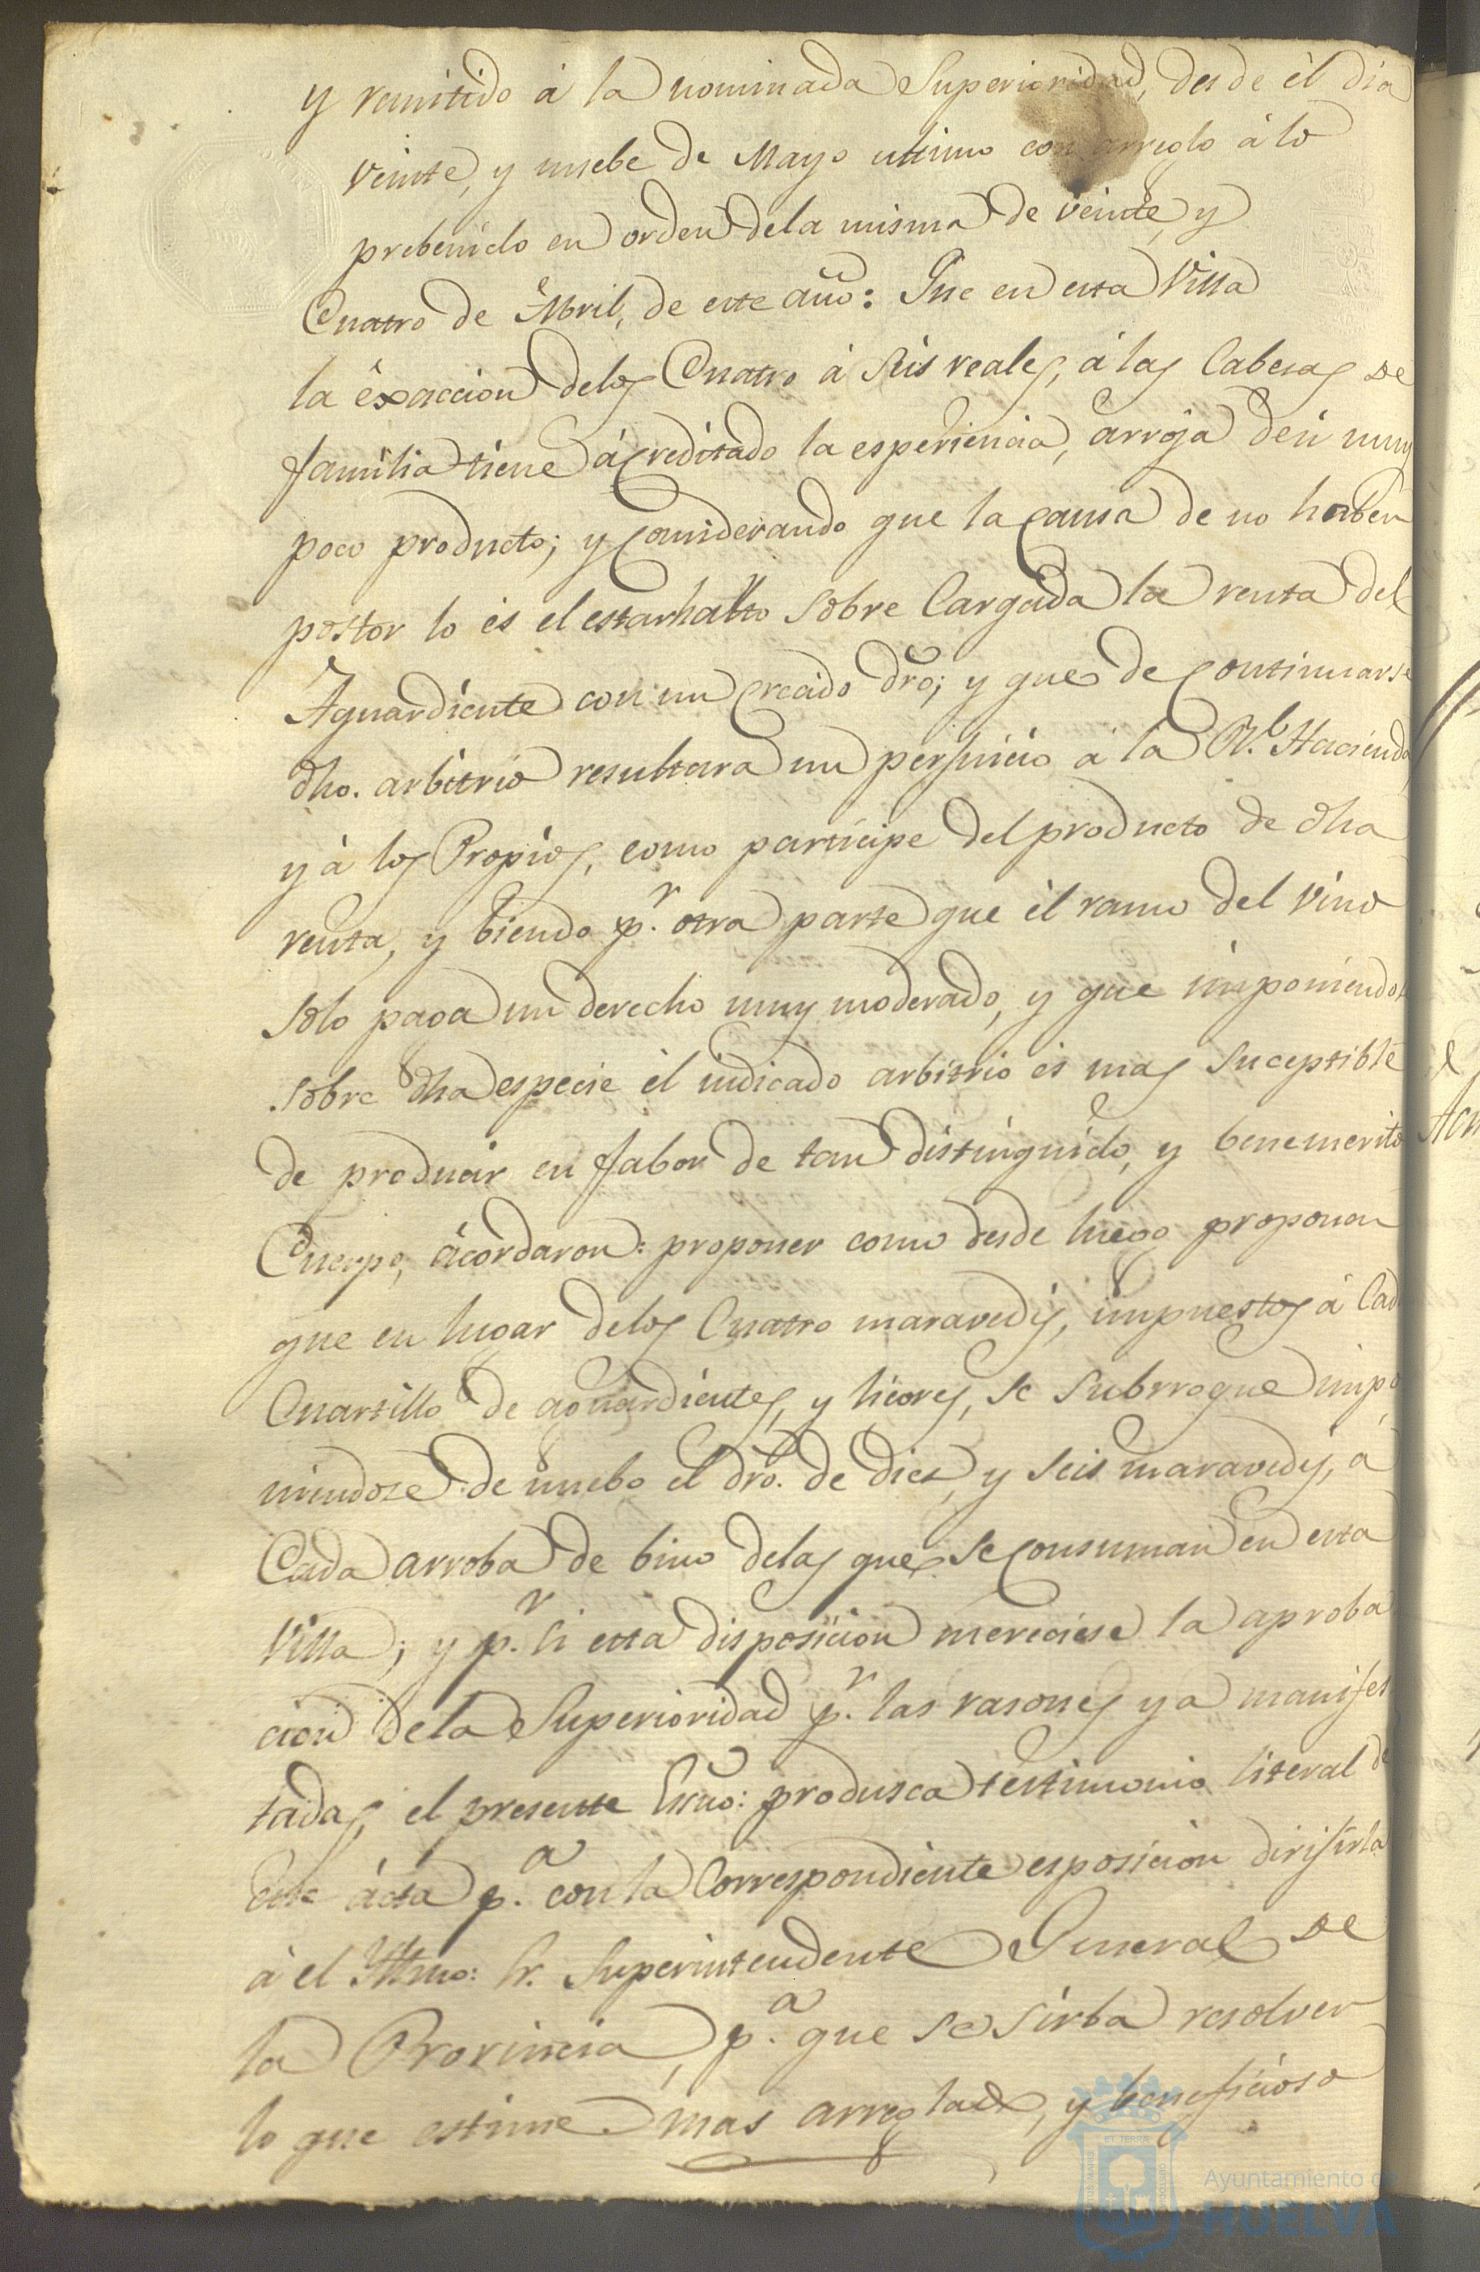 y remitido á la nominada Superioridad, desde él dia
veinte, y nuebe de Mayo ultimo con arreglo á lo
prebenido en orden dela misma de veinte, y
Cuatro de Abril, de este año: Que en esta Villa
la éxaccion delos Cuatro á Seis reales, á las Cabesas de
familia tiene ácreditado la esperiencia, arroja dén muy
poco producto; y Considerando que la Causa de no haber
postor lo és el estar halto Sobre Cargada la renta del
Aguardiente con un crecido dro; y que de Continuarse
dho. arbitrio resultara un perjuicio á la Rl. Hacienda,
y á los Propios, como participe del producto de dha
renta, y biendo pr. otra parte que él ramo del Vino
Solo paga un derecho muy moderado, y que imponiendo
Sobre dha especie él indicado arbitrio és mas Suceptible
de producir en fabor de tan distinguido, y benemerito
Cuerpo, ácordaron: proponer como desde luego proponen
que en lugar delos Cuatro maravedis, impuestos á Cada
Cuartillo de aguardientes, y licores, se Subrrogue impo
niendose de nuebo el dro. de dies, y seis maravedis, á
Cada arroba de bino delas que se Consuman en esta
Villa; y pr. si esta disposicion mereciese la aproba
cion dela Superioridad pr. las rasones ya manifes
tadas, el presente Esno: produsca testimonio literal de
Este ácta pa. con la Correspondiente esposicion dirijirla
á el Yltmo: Sr. Superintendente General de
la Provincia, pa. que se sirba resolver
lo que estime mas arreglado, y beneficioso
ET TERRA
Ayuntamiento de
HUELVA